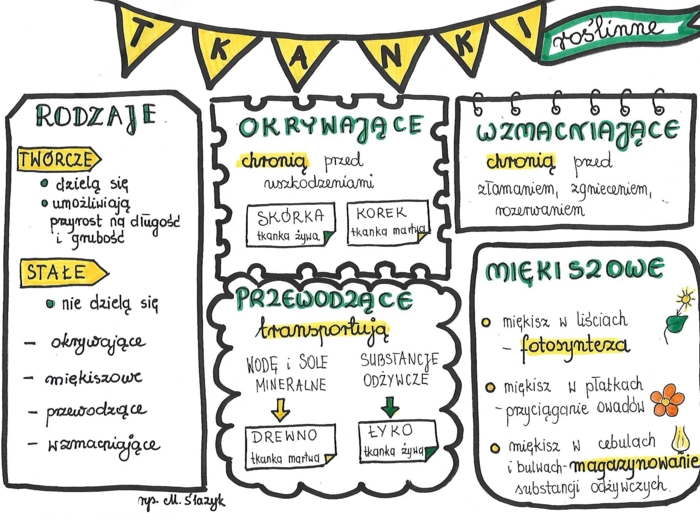 TKANKI
roślinne
RODZAJE
TWÓRCZE
dzielą się
umożliwiają
przyrost na długość
i grubość
STAŁE
nie dzielą się
- okrywające
- miękiszowe
- przewodzące
- wzmacniające
OKRYWAJĄCE
chronią przed
uszkodzeniami
SKÓRKA
tkanka żywa
KOREK
tkanka martwa
PRZEWODZĄCE
transportują
WODĘ i SOLE
MINERALNE
DREWNO
tkanka martwa
SUBSTANCJE
ODŻYWCZE
ŁYKO
tkanka żywa
WZMACNIAJĄCE
chronią przed
złamaniem, zgnieceniem,
rozerwaniem
MIĘKISZOWE
miękisz w liściach
- fotosynteza
miękisz w płatkach
- przyciąganie owadów
miękisz w cebulach
i bulwach - magazynowanie
substancji odżywczych
rys. M. Ślazyk